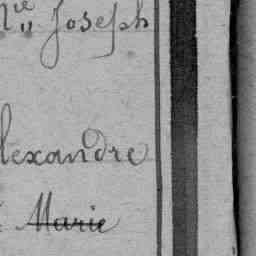 Joseph
lexandre
Marie